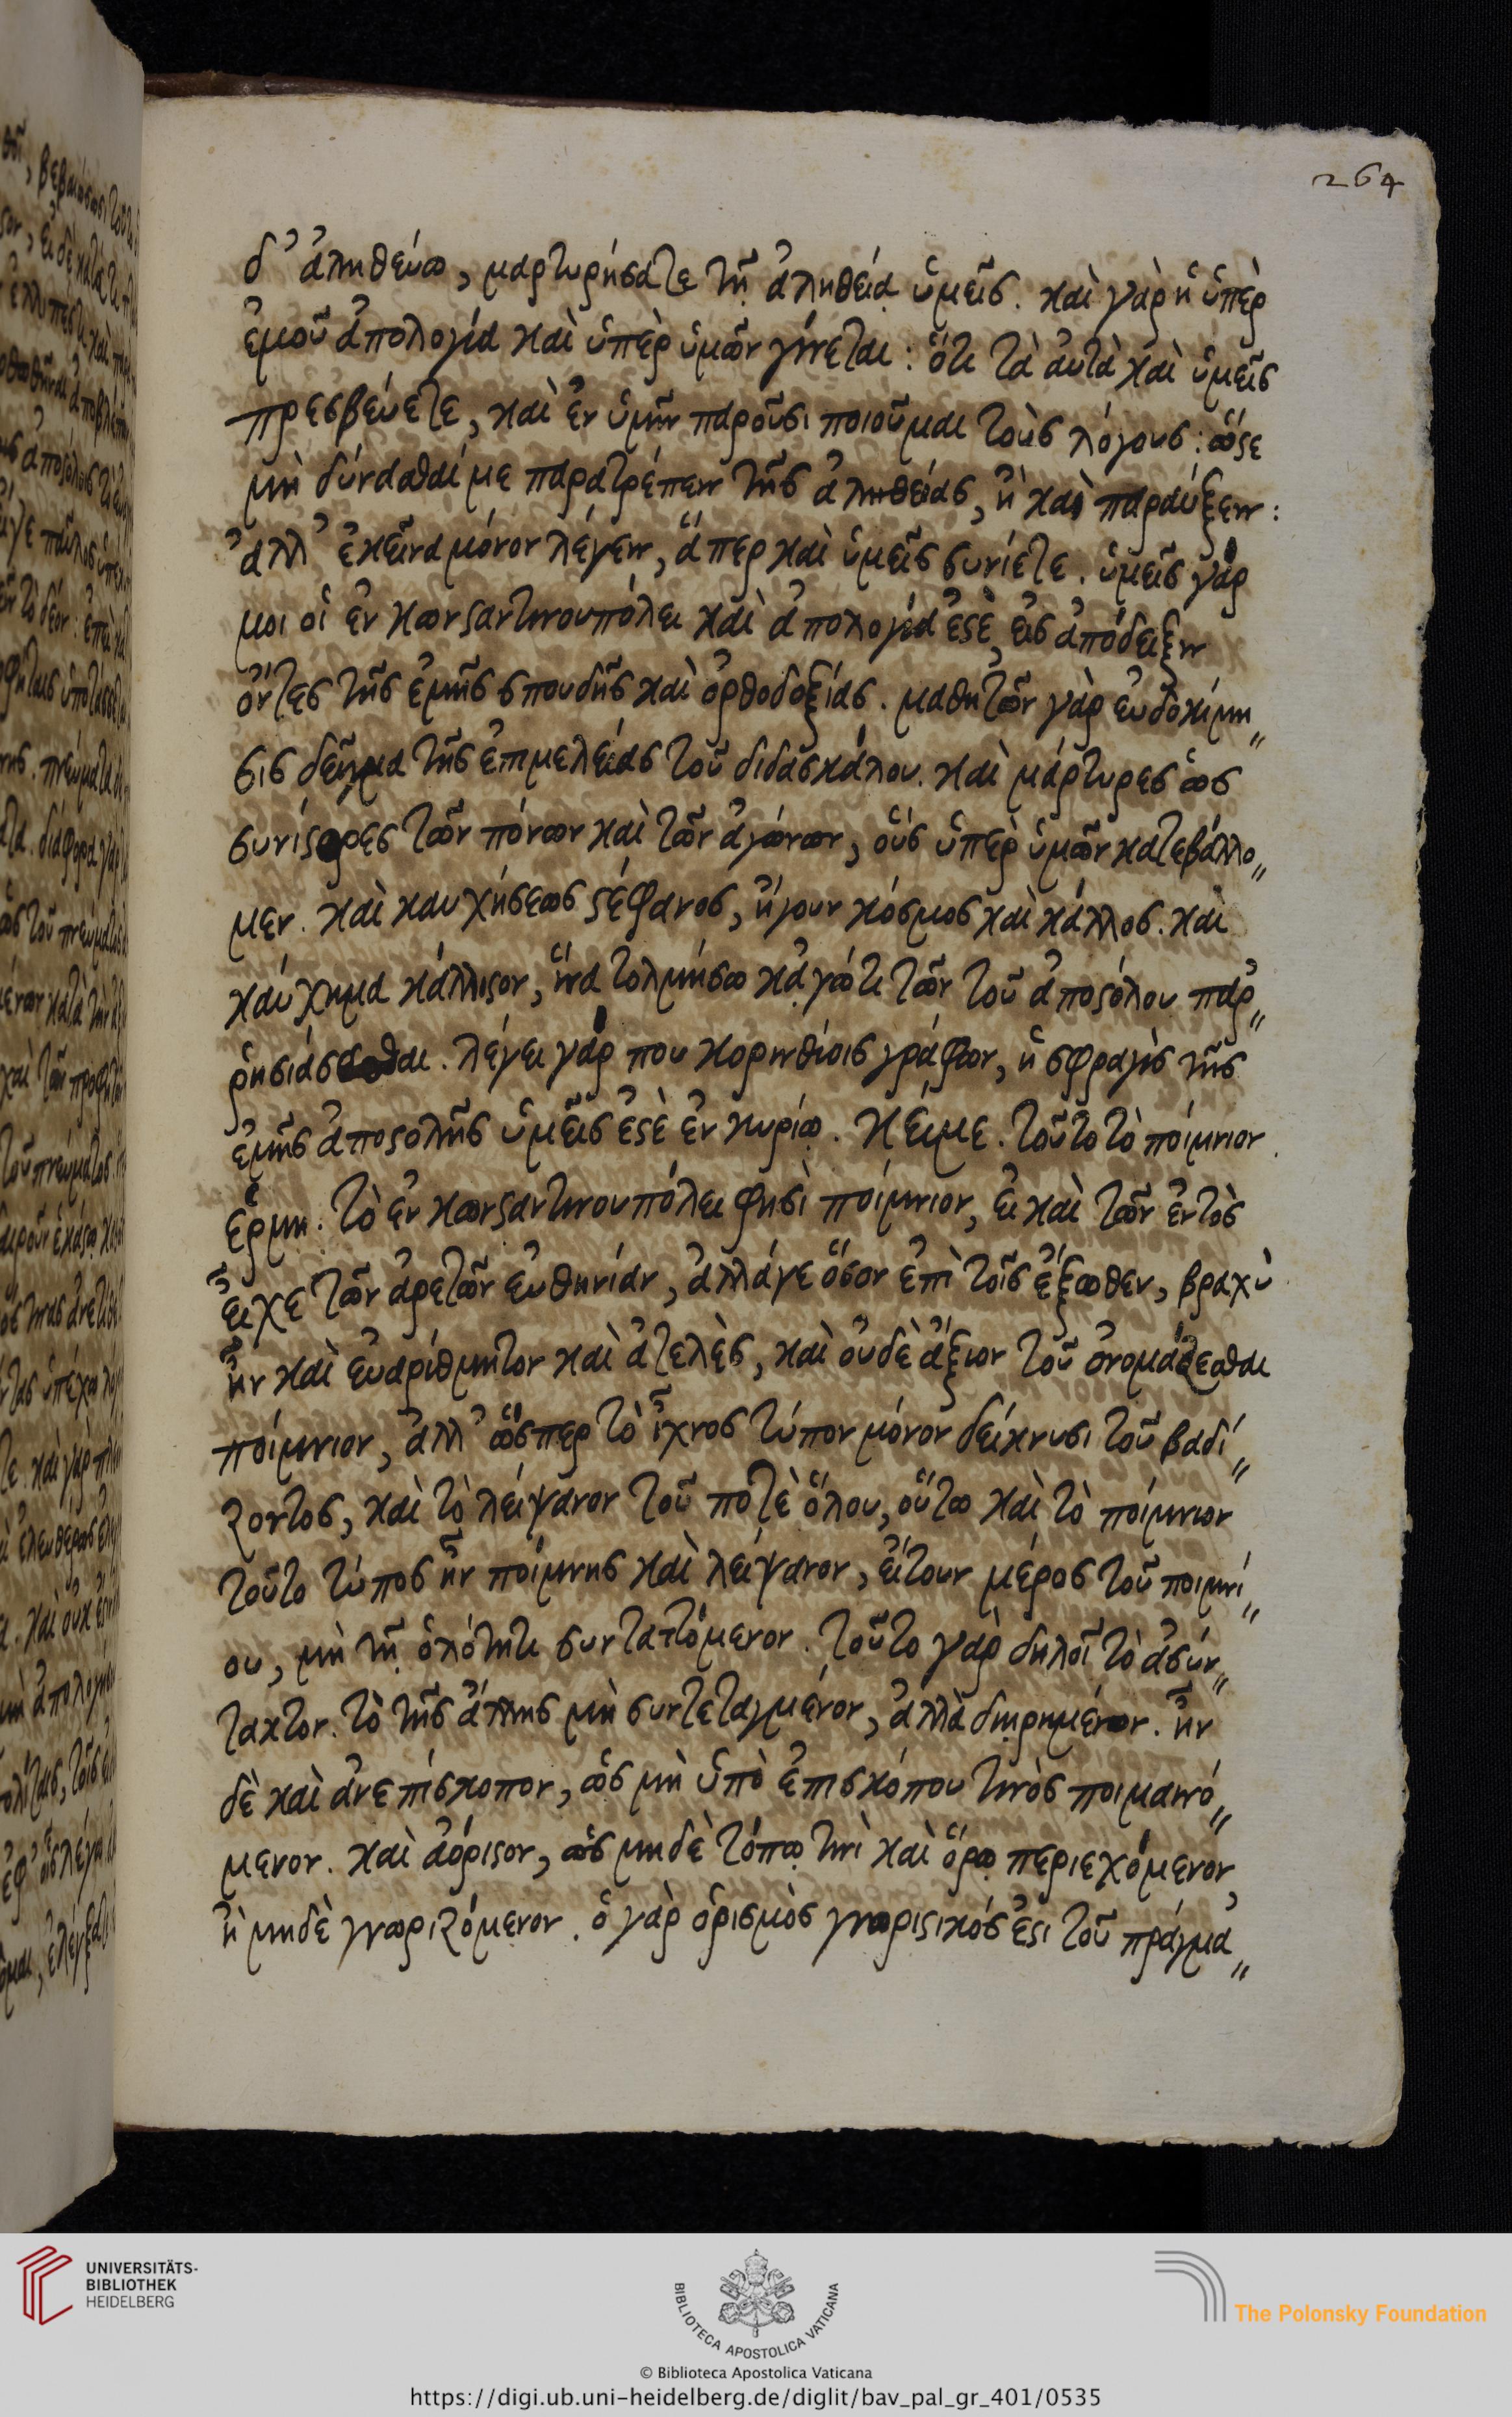 264
δ’ ἀληθεύω, μαρτυρήσατε τῇ ἀληθείᾳ ὑμεῖς. καὶ γὰρ ἡ ὑπὲρ
ἐμοῦ ἀπολογία καὶ ὑπὲρ ὑμῶν γίνεται: ὅτι τὰ αὐτὰ καὶ ὑμεῖς
πρεσβεύετε, καὶ ἐν ὑμῖν παροῦσι ποιοῦμαι τοὺς λόγους: ὥστε
μὴ δύνασθαί με παρατρέπειν τῆς ἀληθείας, ἢ καὶ παραύξειν:
ἀλλ’ ἐκεῖνα μόνον λέγειν, ἅπερ καὶ ὑμεῖς συνίετε. ὑμεῖς γάρ
μοι οἱ ἐν κωνσταντινουπόλει καὶ ἀπολογία ἐστὲ, εἰς ἀπόδειξιν
ὄντες τῆς ἐμῆς σπουδῆς καὶ ὀρθοδοξίας. μαθητῶν γὰρ εὐδοκίμη„
σις δεῖγμα τῆς ἐπιμελείας τοῦ διδασκάλου. καὶ μάρτυρες ὡς
συνίστορες τῶν πόνων καὶ τῶν ἀγώνων, οὓς ὑπὲρ ὑμῶν κατεβάλλο„
μεν. καὶ καυχήσεως στέφανος, ἤγουν κόσμος καὶ κάλλος. καὶ
καύχημα κάλλιστον, ἵνα τολμήσω κᾀγώ τι τῶν τοῦ ἀποστόλου παρ„
ῥησιάσασθαι. λέγει γάρ που κορινθίοις γράφων, ἡ σφραγὶς τῆς
ἐμῆς ἀποστολῆς ὑμεῖς ἐστὲ ἐν κυρίῳ. Κείμε. τοῦτο τὸ ποίμνιον.
ἑρμη. τὸ ἐν κωνσταντινουπόλει φησὶ ποίμνιον, εἰ καὶ τῶν ἐντὸς
εἶχε τῶν ἀρετῶν εὐθηνίαν, ἀλλάγε ὅσον ἐπὶ τοῖς ἔξωθεν, βραχὺ
ἦν καὶ εὐαρίθμητον καὶ ἀτελὲς, καὶ οὐδὲ ἄξιον τοῦ ὀνομάζεσθαι
ποίμνιον, ἀλλ’ ὥσπερ τὸ ἴχνος τύπον μόνον δείκνυσι τοῦ βαδί„
ζοντος, καὶ τὸ λείψανον τοῦ ποτὲ ὅλου, οὕτω καὶ τὸ ποίμνιον
τοῦτο τύπος ἦν ποίμνης καὶ λείψανον, εἴτουν μέρος τοῦ ποιμνί„
ου, μὴ τῇ ὁλότητι συνταττόμενον. τοῦτο γὰρ δηλοῖ τὸ ἀσύν„
τακτον. τὸ τῆς ἄλλης μὴ συντεταγμένον, ἀλλὰ διῃρημένον. ἦν
δὲ καὶ ἀνεπίσκοπον, ὡς μὴ ὑπὸ ἐπισκόπου τινὸς ποιμαινό„
μενον. καὶ ἀόριστον, ὡς μηδὲ τόπῳ τινὶ καὶ ὅρῳ περιεχόμενον,
ἢ μηδὲ γνωριζόμενον. ὁ γὰρ ὁρισμὸς γνωριστικός ἐστι τοῦ πράγμα„
UNIVERSITÄTS-
BIBLIOTHEK
HEIDELBERG
BIBLIOTECA APOSTOLICA VATICANA
The Polonsky Foundation
© Biblioteca Apostolica Vaticana
https://digi.ub.uni-heidelberg.de/diglit/bav_pal_gr_401/0535